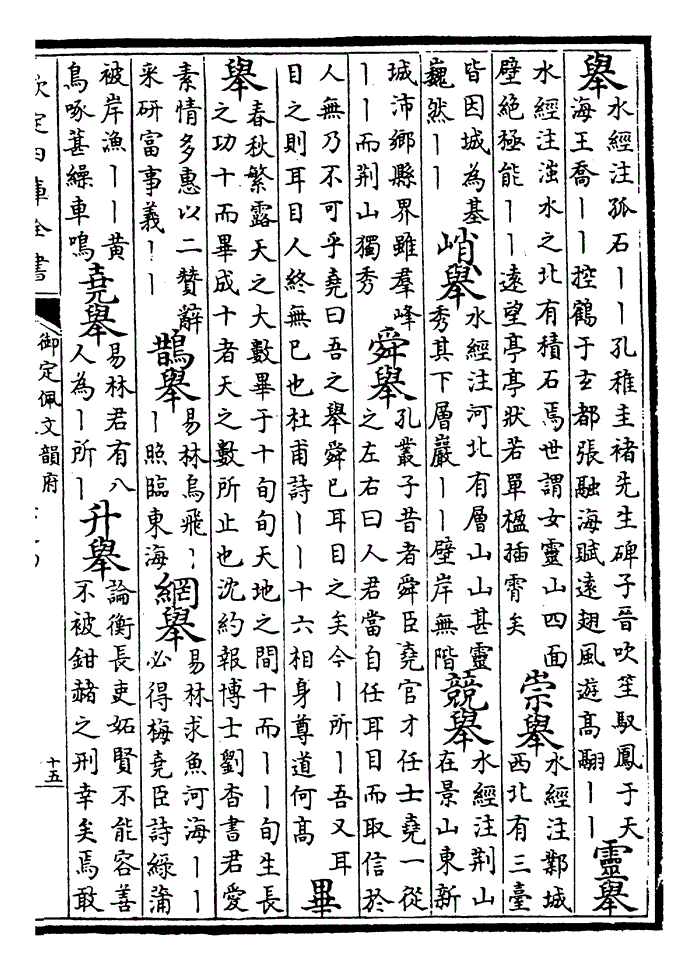 舉
水經注孤石丨丨孔稚圭褚先生碑子晉吹笙馭鳳于天
海王喬丨丨控鶴于玄都張融海賦遠翅風遊高翮丨丨
靈舉
水經注滍水之北有積石焉世謂女靈山四面
壁絕極能丨丨遠望亭亭狀若單楹插霄矣
崇舉
水經注鄴城
西北有三臺
皆因城為基
巍然丨丨
峭舉
水經注河北有層山山甚靈
秀其下層巖丨丨壁岸無階
競舉
水經注荆山
在景山東新
城沛鄉縣界雖羣峰
丨丨而荆山獨秀
舜舉
孔叢子昔者舜臣堯官才任士堯一從
之左右曰人君當自任耳目而取信於
人無乃不可乎堯曰吾之舉舜已耳目之矣今丨所丨吾又耳
目之則耳目人終無已也杜甫詩丨丨十六相身尊道何高
畢
舉
春秋繁露天之大數畢于十旬旬天地之間十而丨丨旬生長
之功十而畢成十者天之數所止也沈約報博士劉杳書君愛
素情多惠以二贊辭
采研富事義丨丨
鵲舉
易林烏飛丨
丨照臨東海
網舉
易林求魚河海丨丨
必得梅堯臣詩綠蒲
被岸漁丨丨黃
鳥啄葚繰車鳴
堯舉
易林君有八
人為丨所丨
升舉
論衡長吏妬賢不能容善
不被鉗赭之刑幸矣焉敢
欽定四庫全書
御定佩文韻府
十五